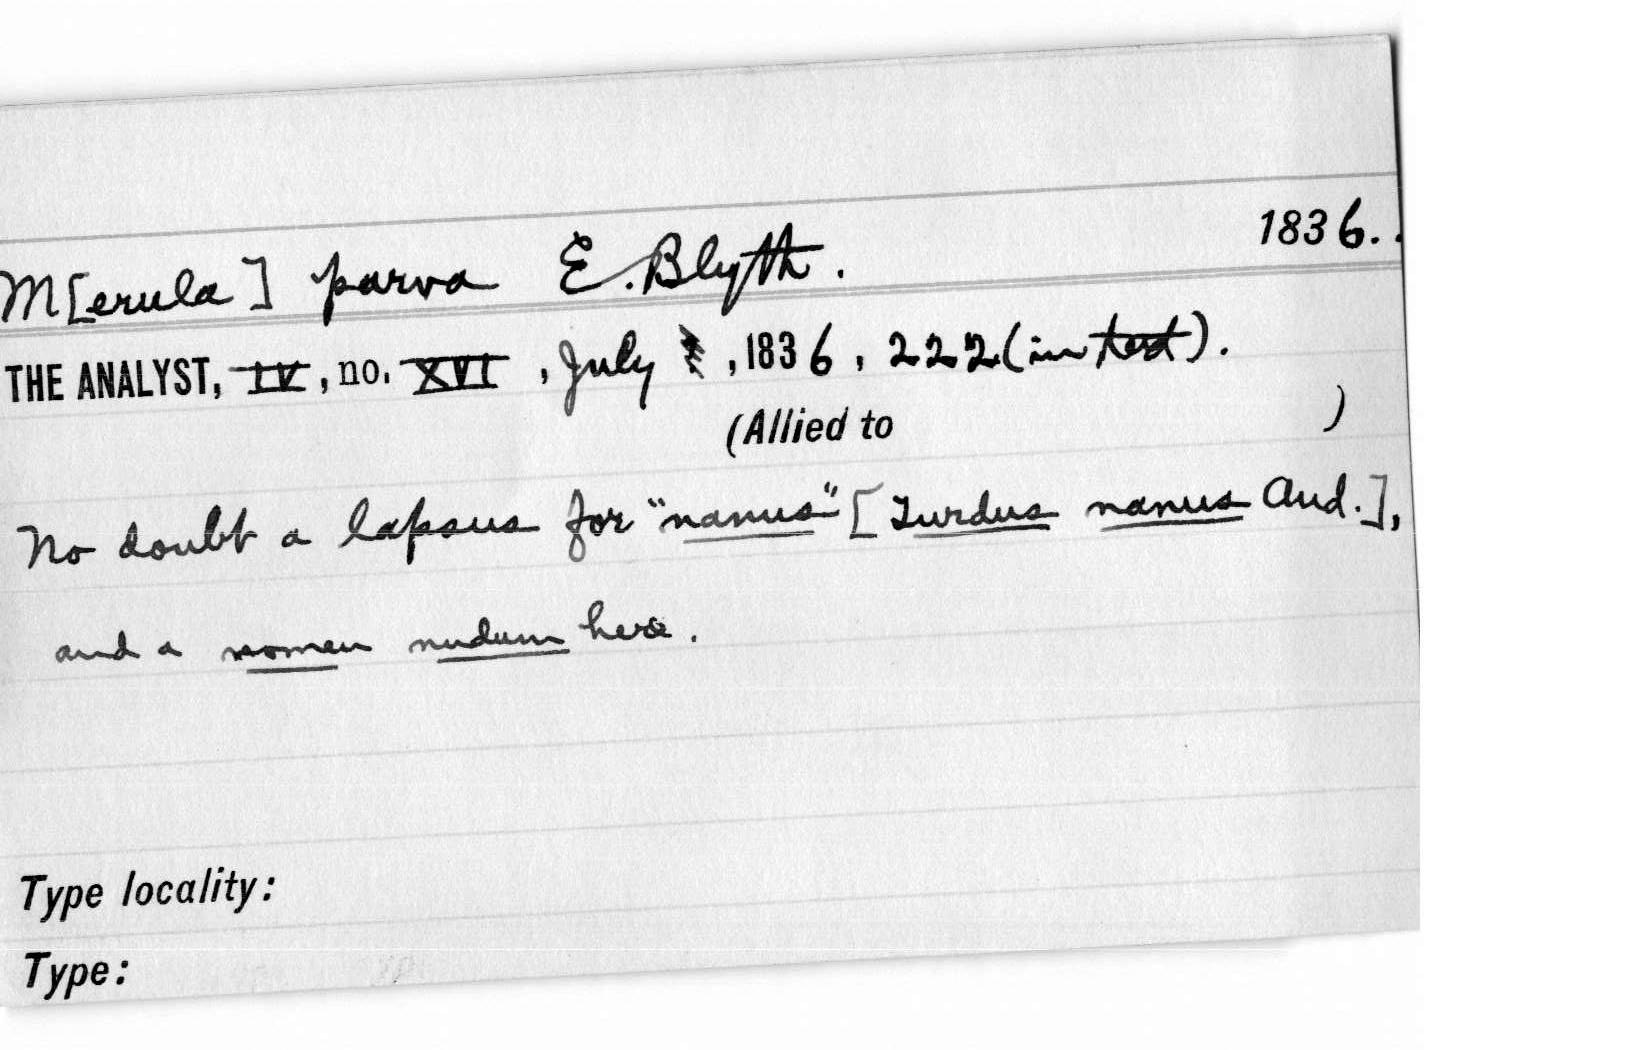 1836.
M[erula] parva E. Blyth.
THE ANALYST, IV, no. XVI, July , 1836, 222 (in text).
(Allied to )
No doubt a lapsus for "nanus" [Turdus nanus Aud.],
and a nomen nudum here.
Type locality:
Type: